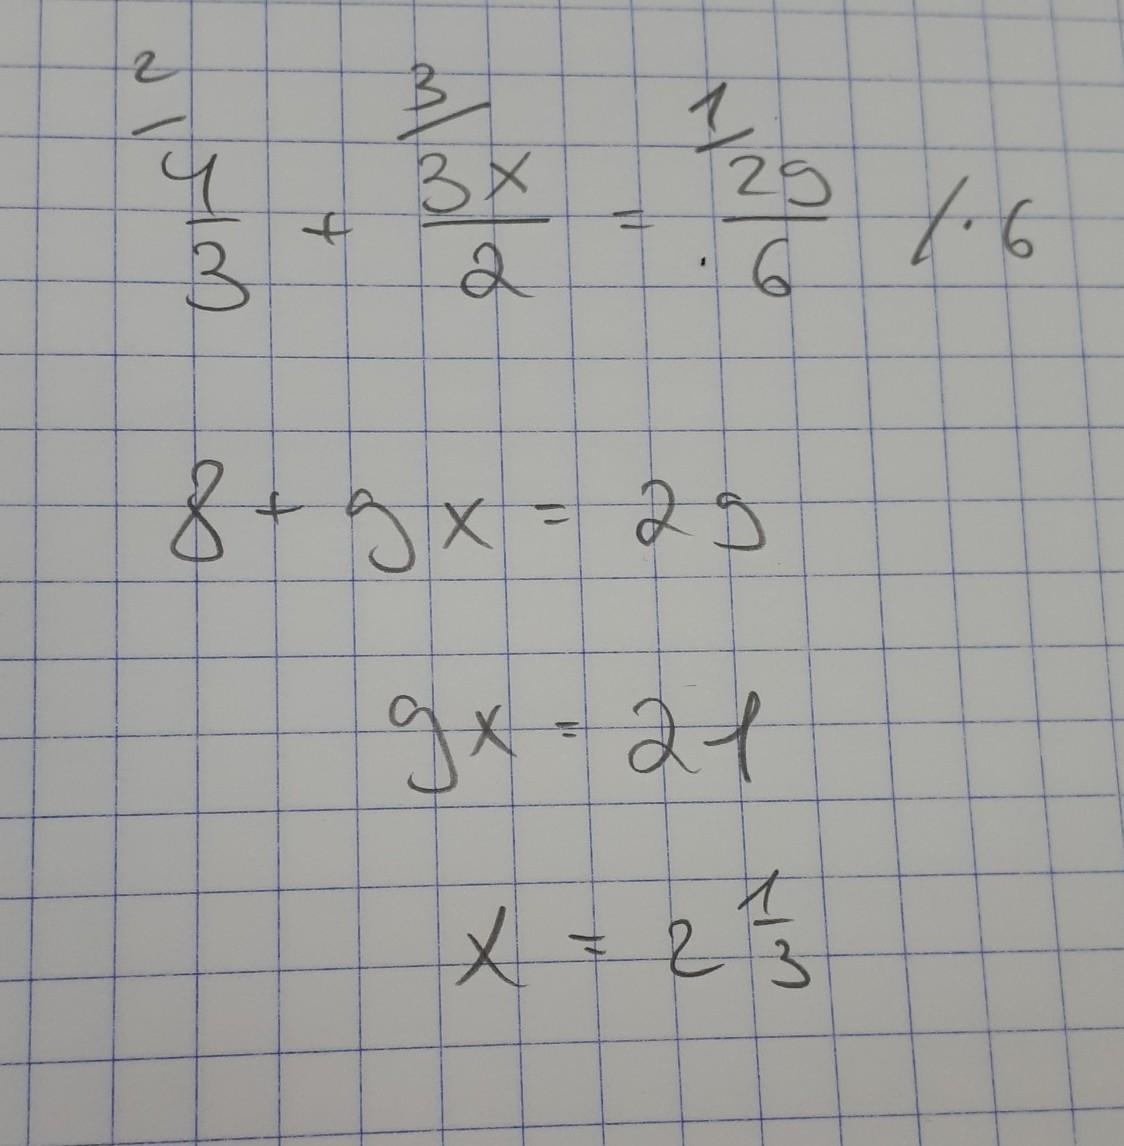 2/ 3/ 1/
4/3 + 3x/2 = 29/6 /·6
8 + 9x = 29
9x = 21
x = 2 1/3